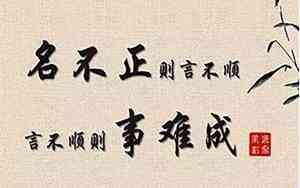 名不正则言不顺
言不顺则事难成